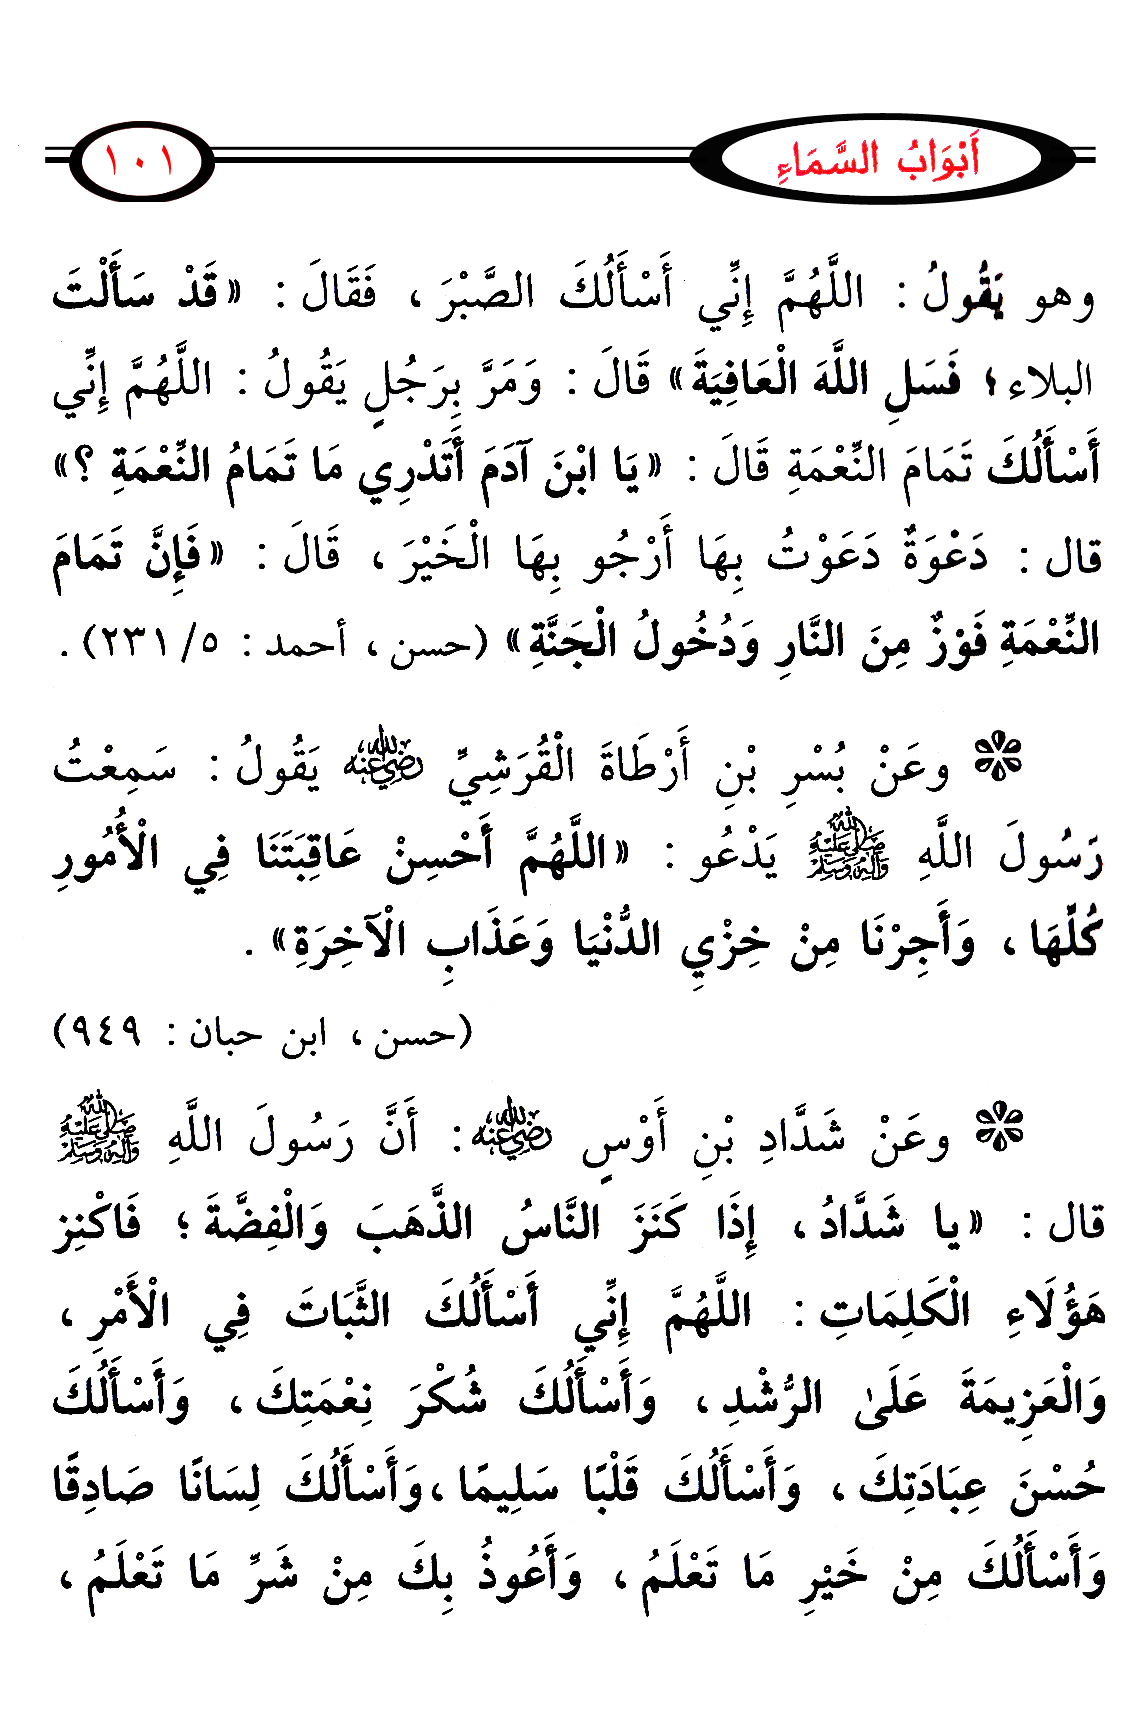 أَبْوَابُ السَّمَاءِ
١٠١
وهو يَقُولُ : اللَّهُمَّ إِنِّي أَسْأَلُكَ الصَّبْرَ ، فَقَالَ : «قَدْ سَأَلْتَ
البلاء ؛ فَسَلِ اللَّهَ الْعَافِيَةَ» قَالَ : وَمَرَّ بِرَجُلٍ يَقُولُ : اللَّهُمَّ إِنِّي
أَسْأَلُكَ تَمَامَ النِّعْمَةِ قَالَ : «يَا ابْنَ آدَمَ أَتَدْرِي مَا تَمَامُ النِّعْمَةِ ؟»
قال : دَعْوَةٌ دَعَوْتُ بِهَا أَرْجُو بِهَا الْخَيْرَ ، قَالَ : «فَإِنَّ تَمَامَ
النِّعْمَةِ فَوْزٌ مِنَ النَّارِ وَدُخُولُ الْجَنَّةِ» (حسن ، أحمد : ٢٣١/٥) .
❃ وعَنْ بُسْرِ بْنِ أَرْطَاةَ الْقُرَشِيِّ رضي الله عنه يَقُولُ : سَمِعْتُ
رَسُولَ اللَّهِ ﷺ يَدْعُو : «اللَّهُمَّ أَحْسِنْ عَاقِبَتَنَا فِي الْأُمُورِ
كُلِّهَا ، وَأَجِرْنَا مِنْ خِزْيِ الدُّنْيَا وَعَذَابِ الْآخِرَةِ» .
(حسن ، ابن حبان : ٩٤٩)
❃ وعَنْ شَدَّادِ بْنِ أَوْسٍ رضي الله عنه : أَنَّ رَسُولَ اللَّهِ ﷺ
قال : «يا شَدَّادُ ، إِذَا كَنَزَ النَّاسُ الذَّهَبَ وَالْفِضَّةَ ؛ فَاكْنِز
هَؤُلَاءِ الْكَلِمَاتِ : اللَّهُمَّ إِنِّي أَسْأَلُكَ الثَّبَاتَ فِي الْأَمْرِ ،
وَالْعَزِيمَةَ عَلَىٰ الرُّشْدِ ، وَأَسْأَلُكَ شُكْرَ نِعْمَتِكَ ، وَأَسْأَلُكَ
حُسْنَ عِبَادَتِكَ ، وَأَسْأَلُكَ قَلْبًا سَلِيمًا ،وَأَسْأَلُكَ لِسَانًا صَادِقًا
وَأَسْأَلُكَ مِنْ خَيْرِ مَا تَعْلَمُ ، وَأَعُوذُ بِكَ مِنْ شَرِّ مَا تَعْلَمُ ،